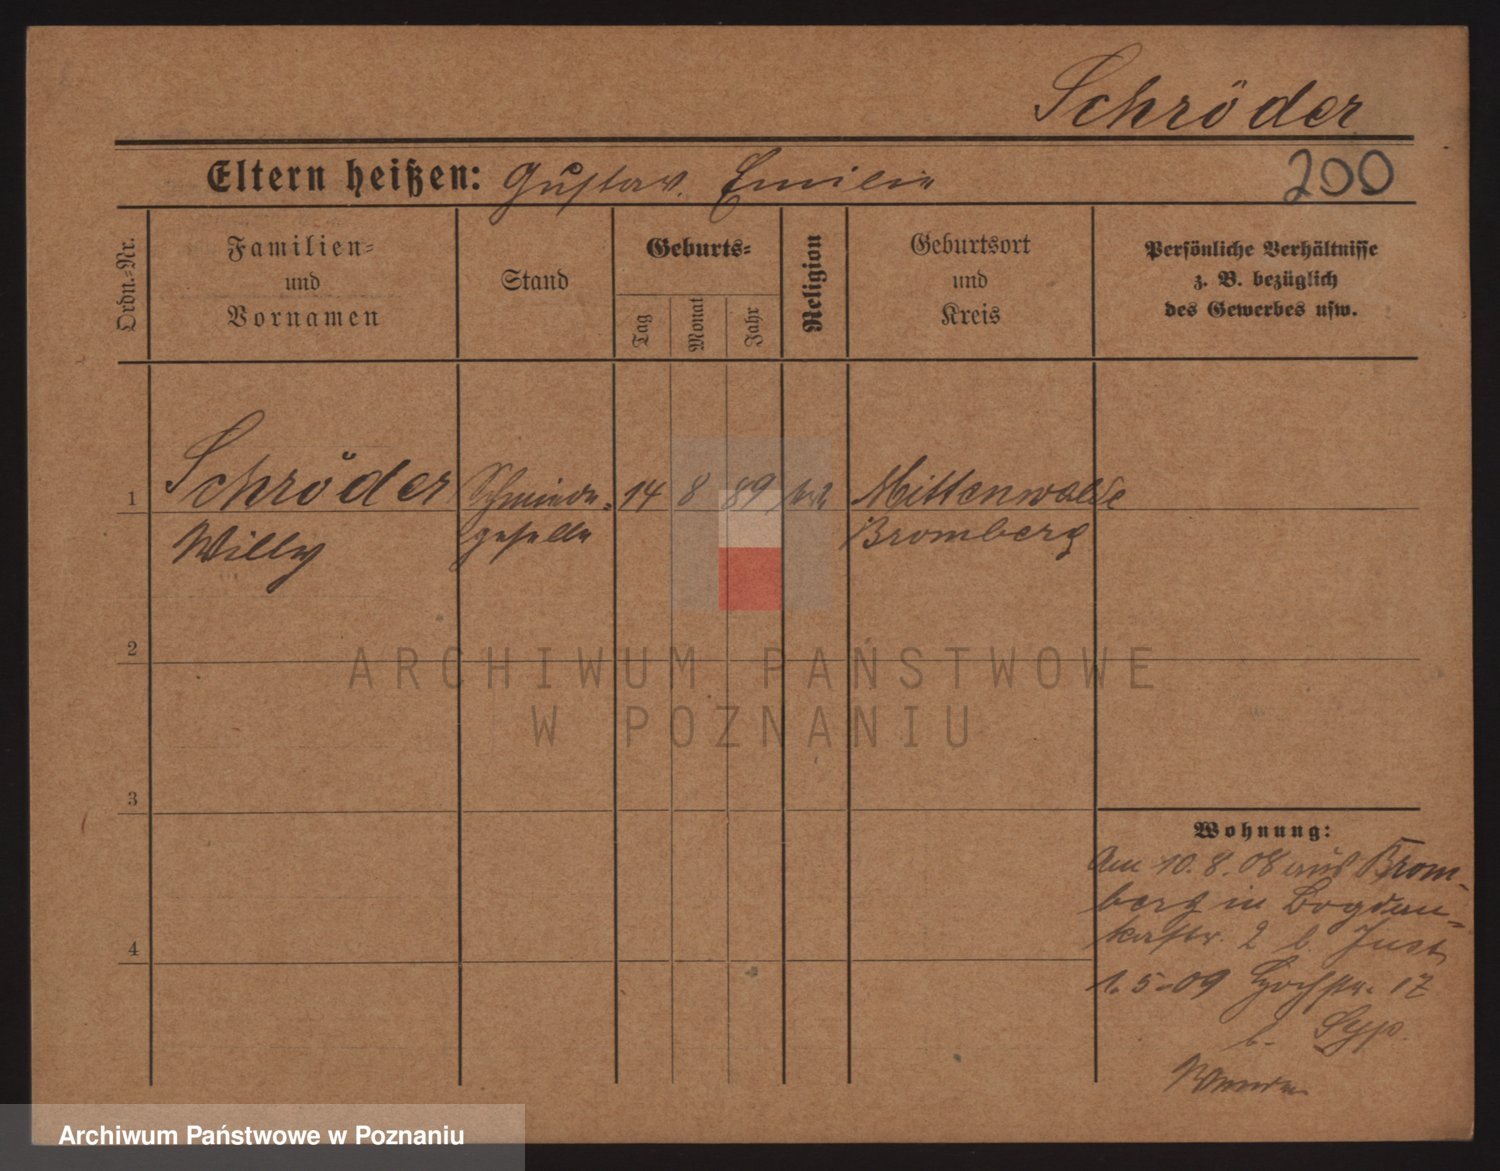 Schröder
Eltern heißen: Gustav. Emilie
200
Ordn.=Nr.
Familien=
und
Vornamen
Stand
Geburts=
Tag
Monat
Jahr
Religion
Geburtsort
und
Kreis
Persönliche Verhältnisse
z. B. bezüglich
des Gewerbes usw.
1 Schröder Schmiede= 14 8 89 Mittenwalde
Willy geselle Bromberg
2
ARCHIWUM PAŃSTWOWE
W POZNANIU
3
Wohnung:
Am 10.8.08 aus Brom-
berg in Bogdan=
kastr. 2 b. Just
4
1.5-09 17
b.
Archiwum Państwowe w Poznaniu